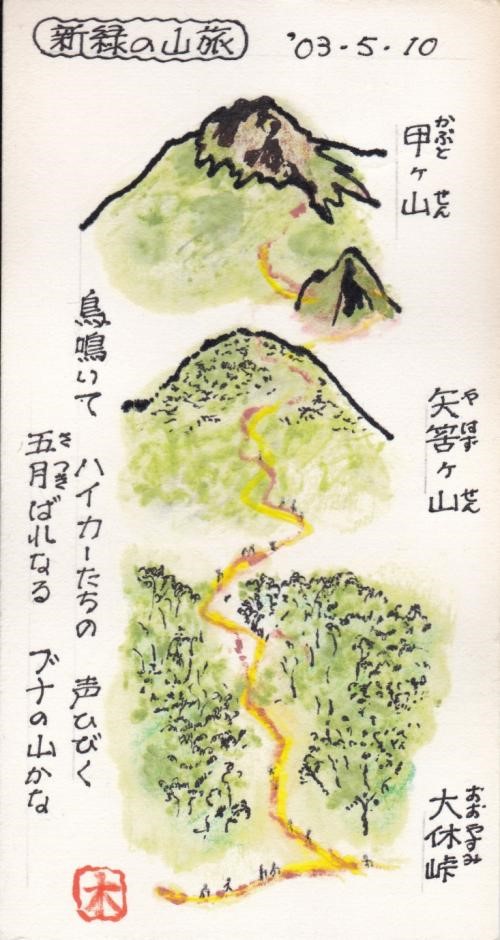 新緑の山旅
'03-5-10
甲ヶ山
かぶと せん
矢筈ヶ山
や はず せん
大休峠
おおやすみ
鳥鳴いて ハイカーたちの 声ひびく
五月ばれなる ブナの山かな
さ つき
木